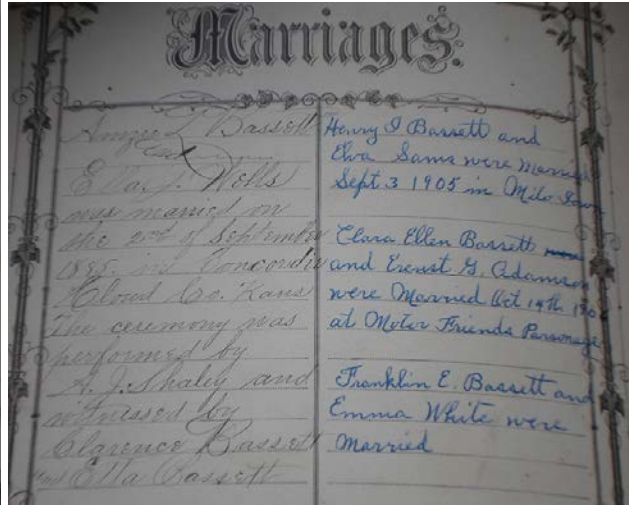 Marriages.
Amzee L Bassett
and
Ella J. Wells
was married on
the 2nd of September
1885. in Concordia
Cloud Co. Kans
The ceremony was
performed by
A. J. Shaley and
witnessed by
Clarence Bassett
and Ella Bassett
Henry I Bassett and
Elva Sams were Married
Sept 3 1905 in Milo Iowa
Clara Ellen Bassett
and Erenst G. Adamson
were Married Oct 19th 190
at Motor Friends Parsonage
Franklin E. Bassett and
Emma White were
Married